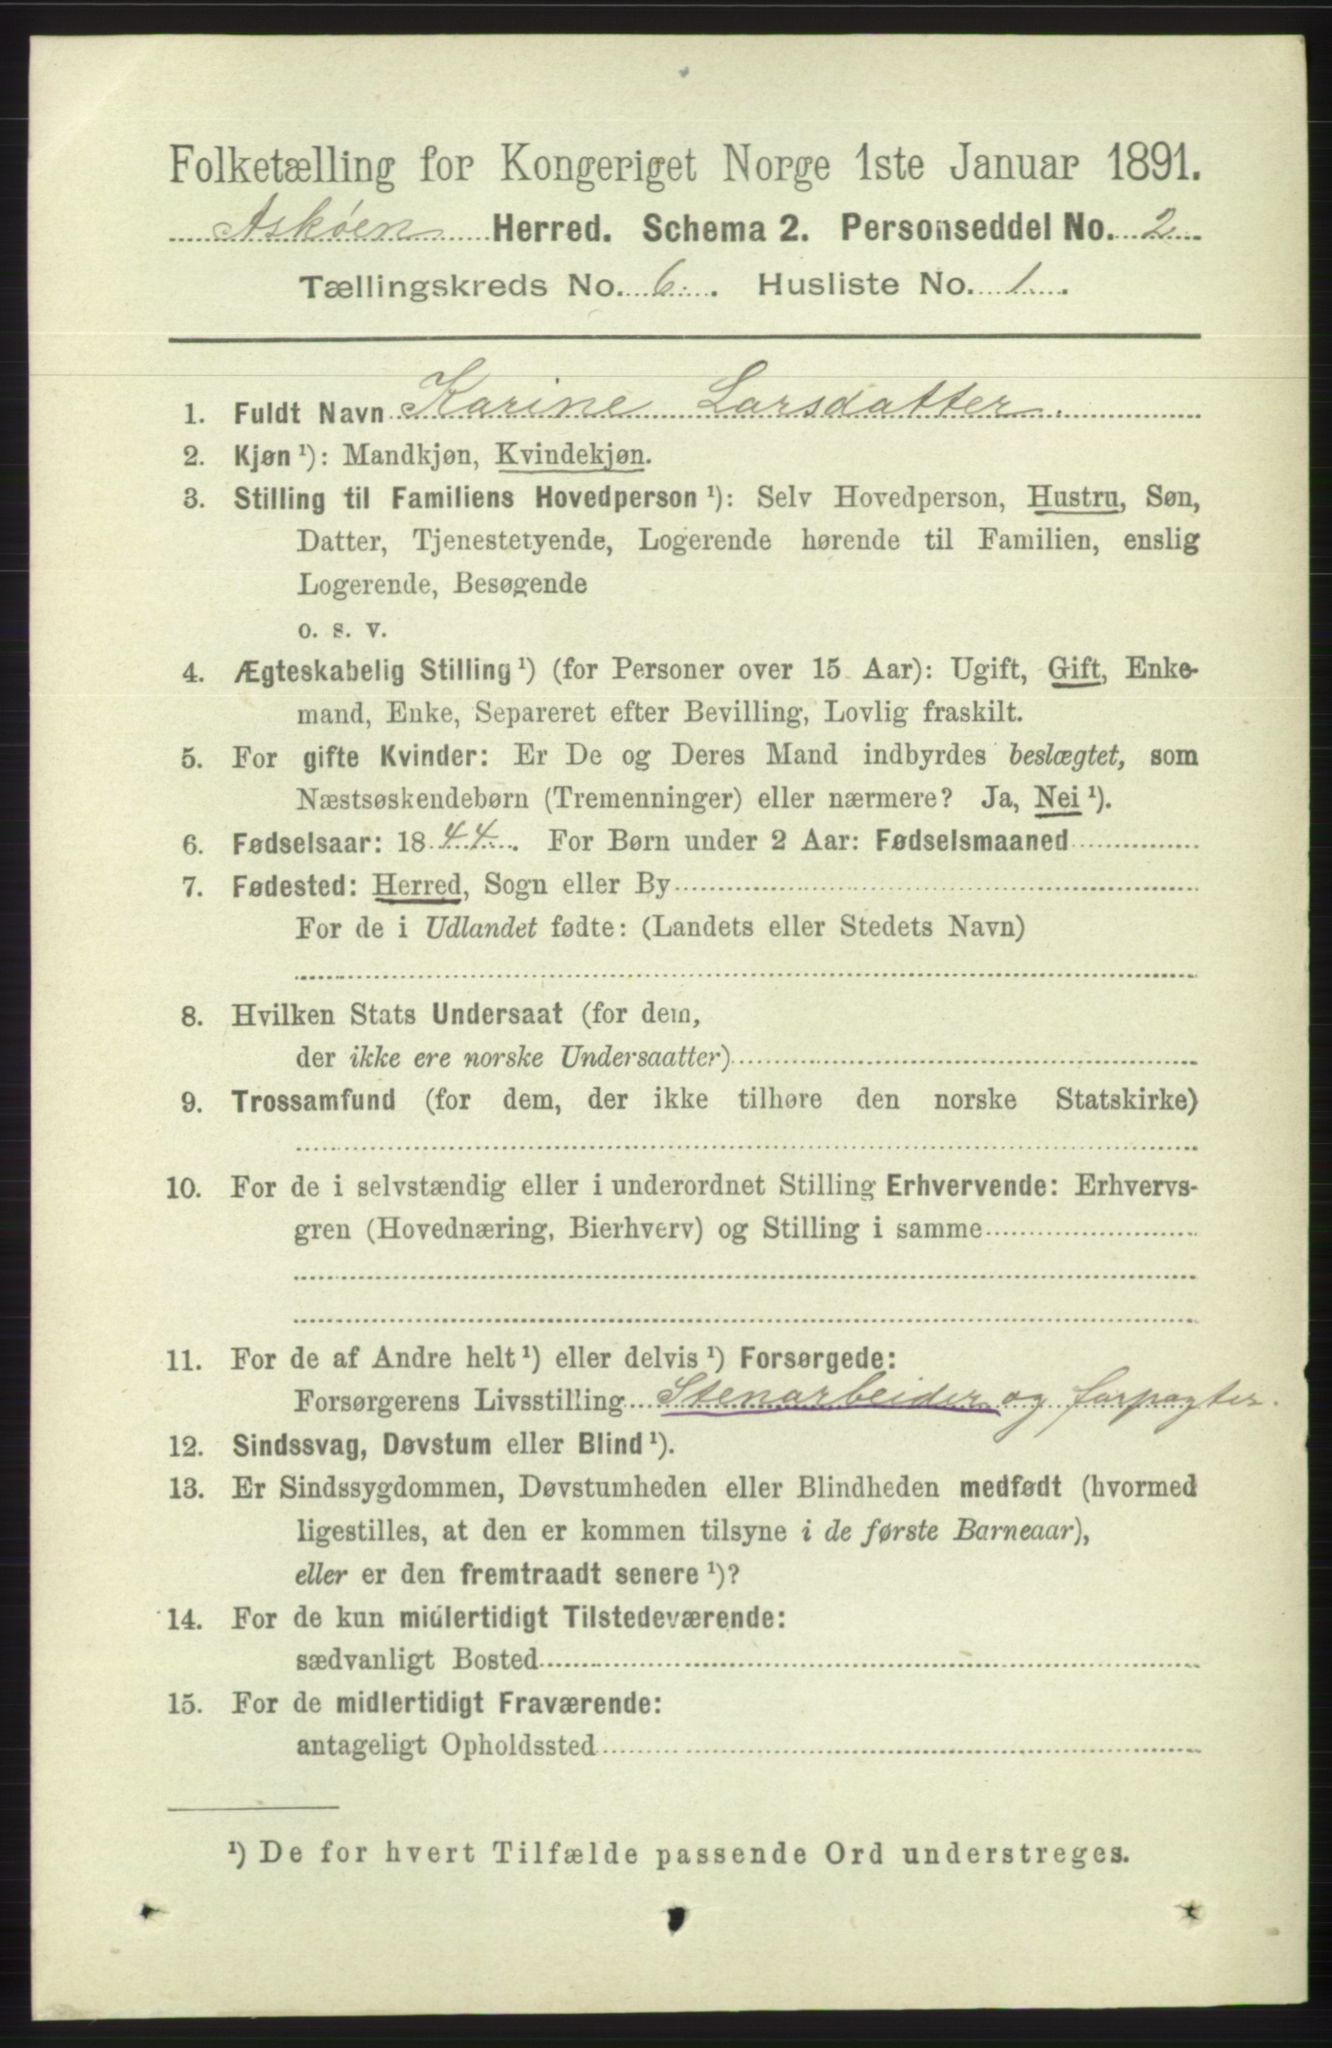 Folketælling for Kongeriget Norge 1ste Januar 1891.
Askøen Herred. Schema 2. Personseddel No. 2
Tællingskreds No. 6. Husliste No. 1
1. Fuldt Navn Karine Larsdatter.
2. Kjøn ¹): Mandkjøn, Kvindekjøn.
3. Stilling til Familiens Hovedperson ¹): Selv Hovedperson, Hustru, Søn,
Datter, Tjenestetyende, Logerende hørende til Familien, enslig
Logerende, Besøgende
o. s. v.
4. Ægteskabelig Stilling ¹) (for Personer over 15 Aar): Ugift, Gift, Enke-
mand, Enke, Separeret efter Bevilling, Lovlig fraskilt.
5. For gifte Kvinder: Er De og Deres Mand indbyrdes beslægtet, som
Næstsøskendebørn (Tremenninger) eller nærmere? Ja, Nei ¹).
6. Fødselsaar: 1844. For Børn under 2 Aar: Fødselsmaaned
7. Fødested: Herred, Sogn eller By
For de i Udlandet fødte: (Landets eller Stedets Navn)
8. Hvilken Stats Undersaat (for dem,
der ikke ere norske Undersaatter)
9. Trossamfund (for dem, der ikke tilhøre den norske Statskirke)
10. For de i selvstændig eller i underordnet Stilling Erhvervende: Erhvervs-
gren (Hovednæring, Bierhverv) og Stilling i samme
11. For de af Andre helt ¹) eller delvis ¹) Forsørgede:
Forsørgerens Livsstilling Stenarbeider og forpagter.
12. Sindssvag, Døvstum eller Blind ¹).
13. Er Sindssygdommen, Døvstumheden eller Blindheden medfødt (hvormed
ligestilles, at den er kommen tilsyne i de første Barneaar),
eller er den fremtraadt senere ¹)?
14. For de kun midlertidigt Tilstedeværende:
sædvanligt Bosted
15. For de midlertidigt Fraværende:
antageligt Opholdssted
¹) De for hvert Tilfælde passende Ord understreges.